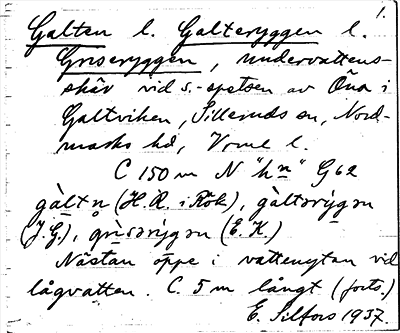 1.
Galten l. Galteryggen l.
Griseryggen, undervattens-
skär vid s.-spetsen av Öna i
Galtviken, Silleruds sn, Nord-
marks hd, Vrml l.
C 150 m N "hn" G62
gàltn (H.A. i Rök), gàltərýgən
(J.G.), grìsərýgən (E.K.)
Nästan öppe i vattenytan vid
lågvatten. C. 5 m långt (forts.)
E. Silfors 1937.